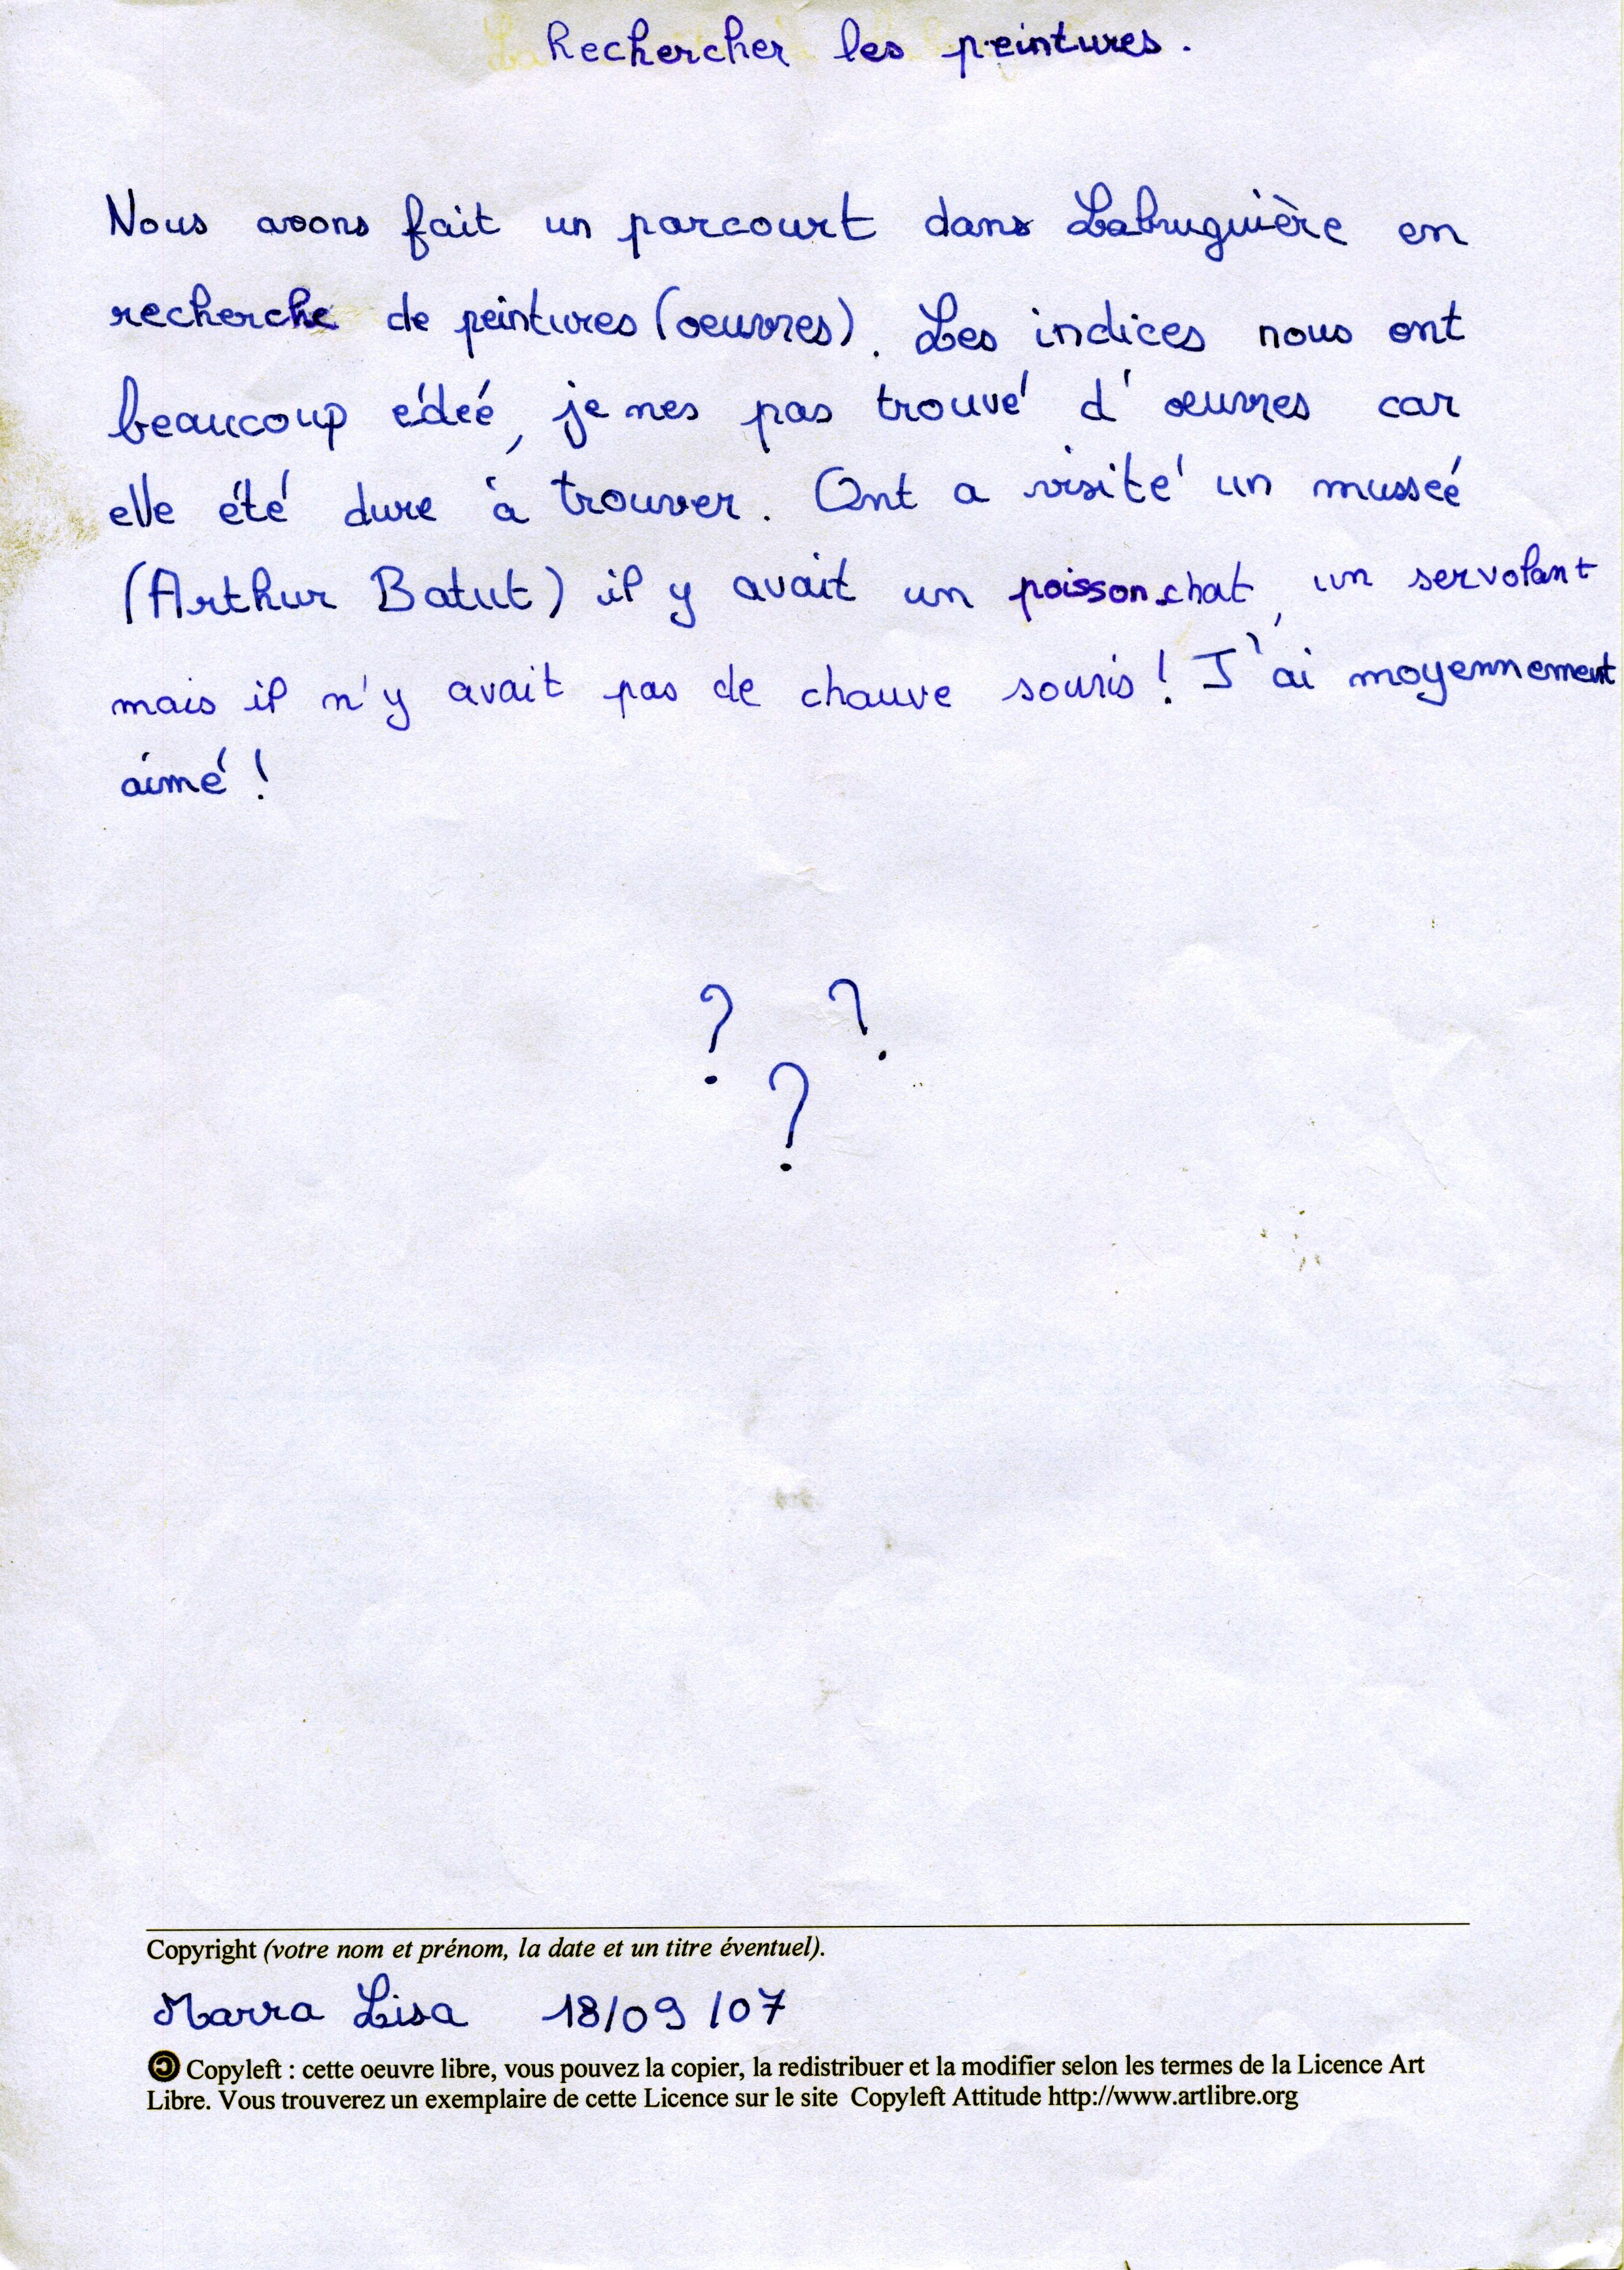 Rechercher les peintures.
Nous avons fait un parcourt dans Labruguière en
recherche de peintures (oeuvres). Les indices nous ont
beaucoup édéé, je nes pas trouvé d'oeuvres car
elle été dure à trouver. Ont a visité un musseé
(Arthur Batut) il y avait un poisson chat, un servolant
mais il n'y avait pas de chauve souris ! J'ai moyennement
aimé !
? ?
?
Copyright (votre nom et prénom, la date et un titre éventuel).
Marra Lisa 18/09/07
Copyleft : cette oeuvre libre, vous pouvez la copier, la redistribuer et la modifier selon les termes de la Licence Art
Libre. Vous trouverez un exemplaire de cette Licence sur le site Copyleft Attitude http://www.artlibre.org